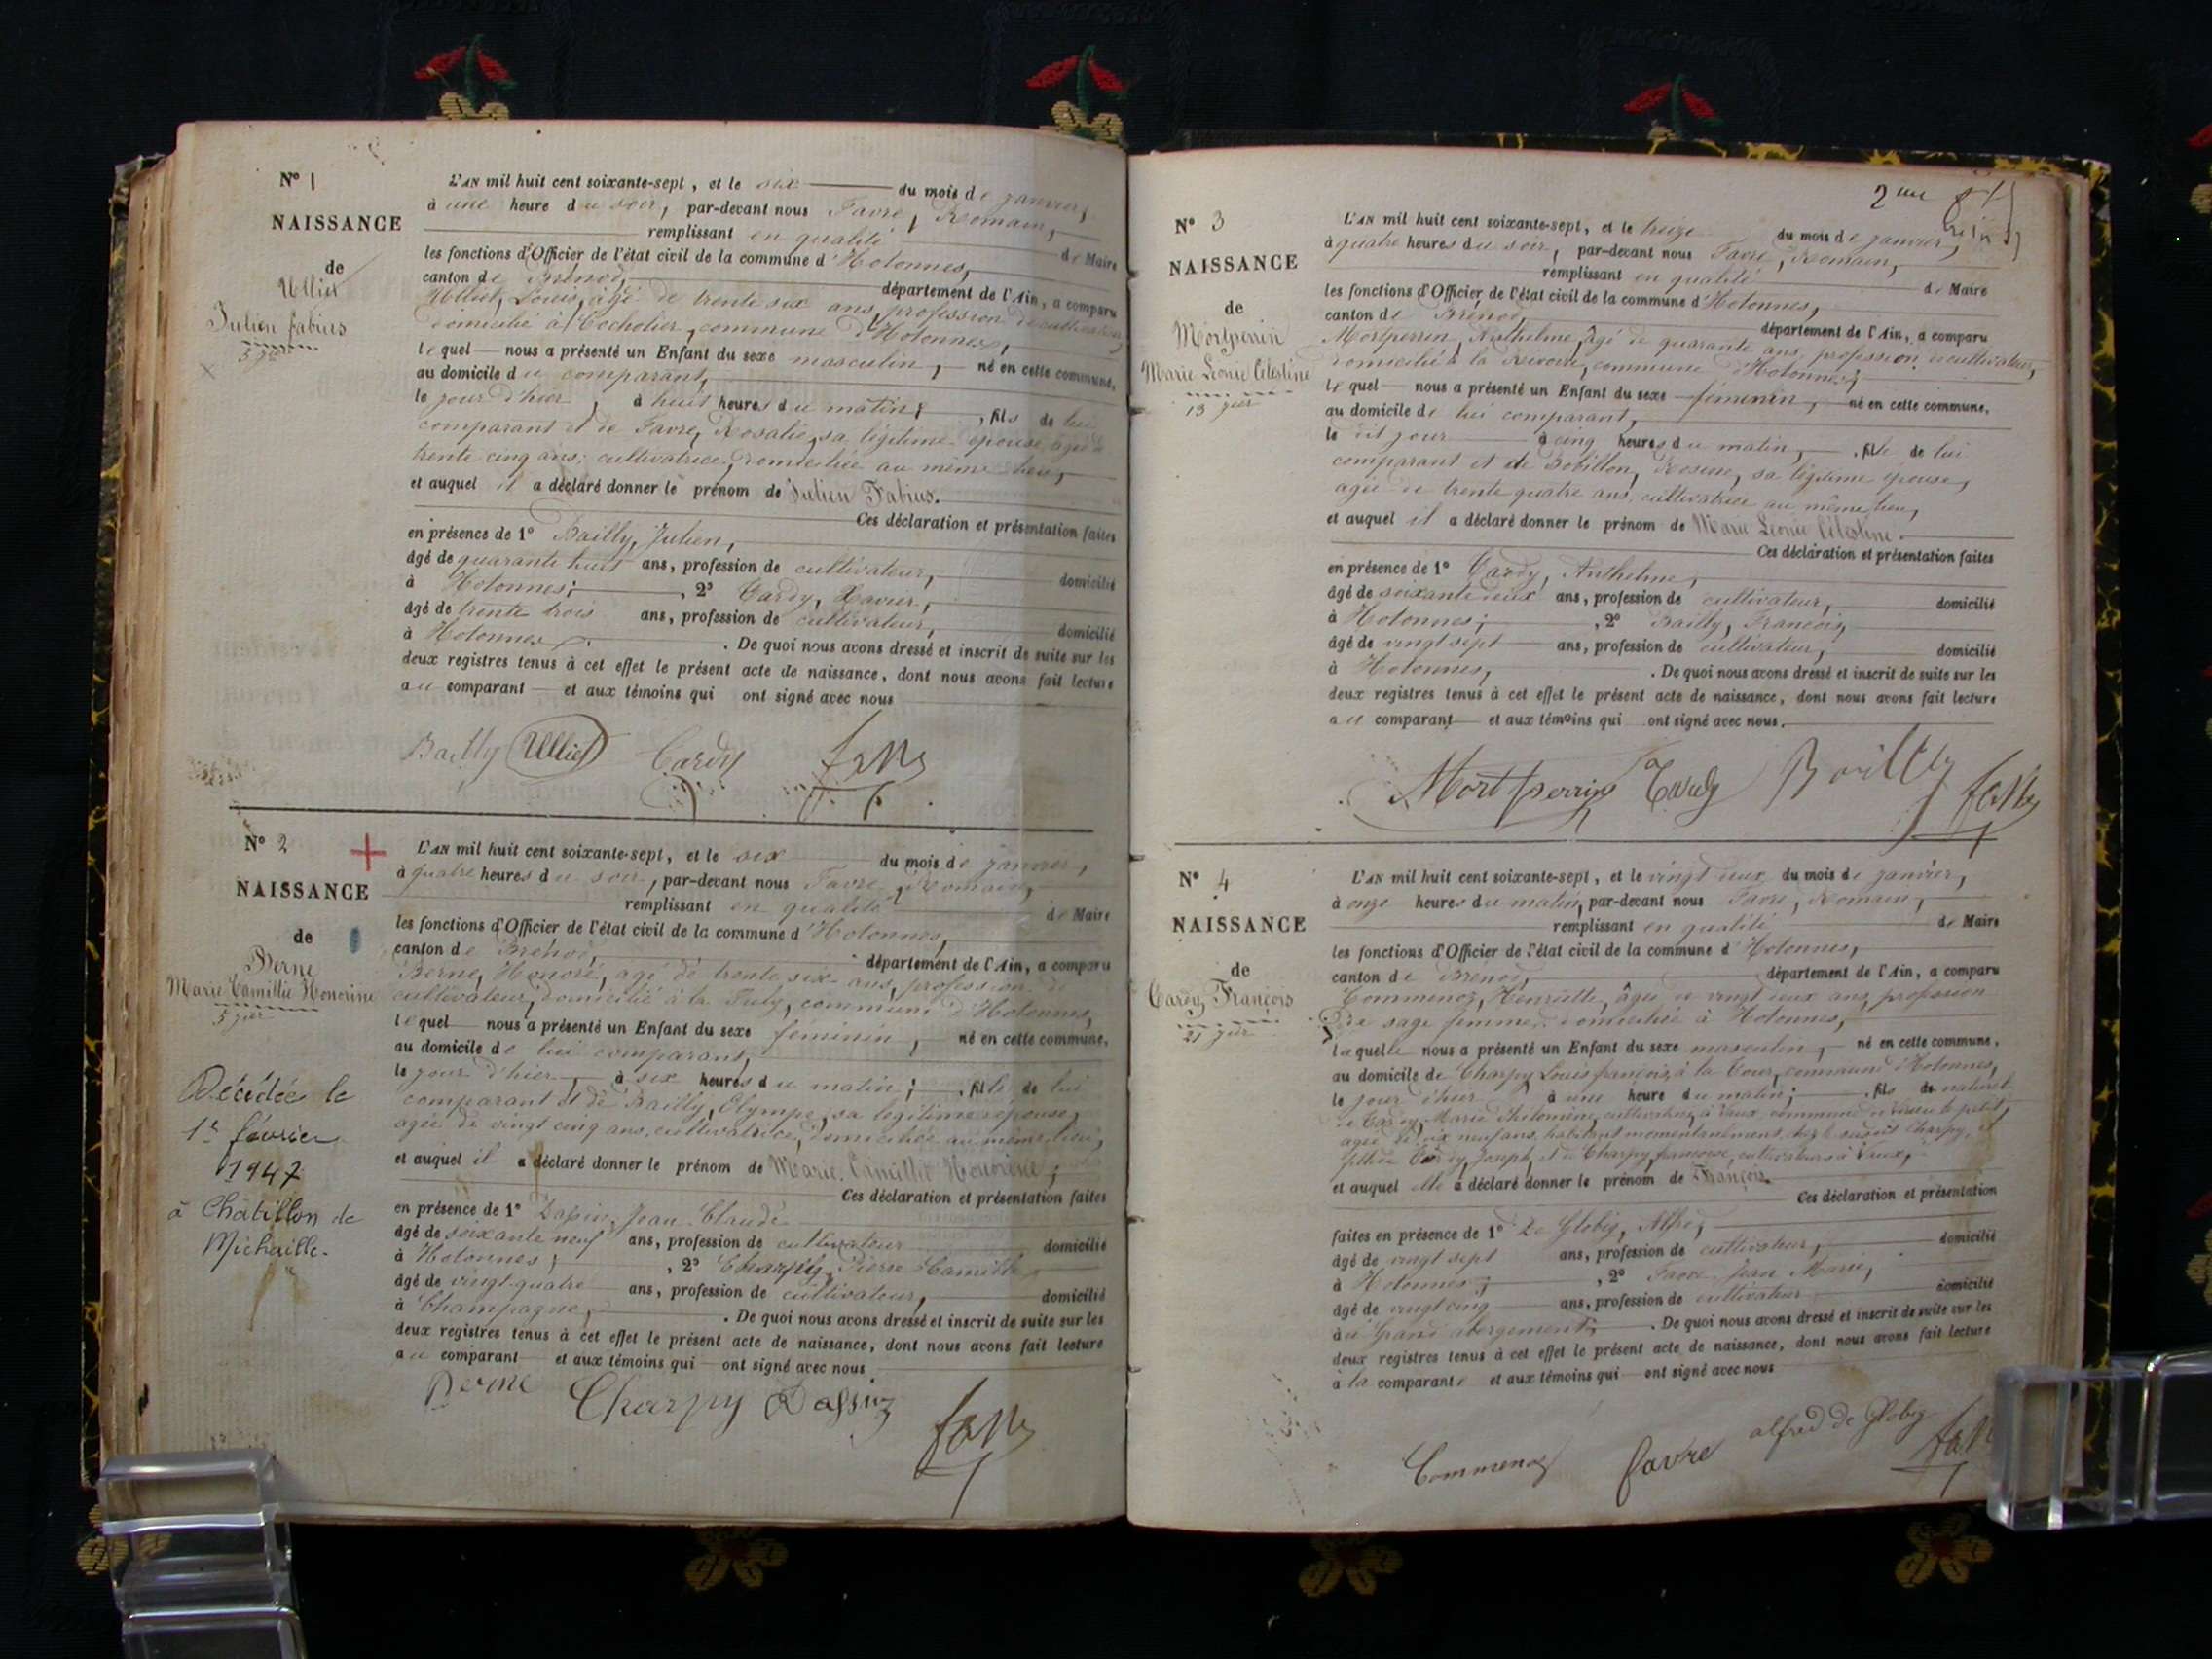 N° 1
NAISSANCE
de
Ulliet
Julien fabius
5 jer
L'AN mil huit cent soixante-sept, et le six du mois de janvier,
à une heure du soir, par-devant nous Favre, Romain,
remplissant en qualité de Maire
les fonctions d'Officier de l'état civil de la commune d'Hotonnes,
canton de Brénod, département de l'Ain, a comparu
Ulliet, Louis, âgé de trente six ans, profession de cultivateur,
domicilié à , commune d'Hotonnes,
lequel nous a présenté un Enfant du sexe masculin, né en cette commune,
au domicile du comparant,
le jour d'hier, à huit heures du matin; , fils de lui
comparant et de Favre, Rosalie, sa légitime épouse, âgée de
trente cinq ans, cultivatrice, domiciliée au même lieu,
et auquel il a déclaré donner le prénom de Julien Fabius.
Ces déclaration et présentation faites
en présence de 1° Bailly, Julien,
âgé de quarante huit ans, profession de cultivateur, domicilié
à Hotonnes; , 2° Cardy, Xavier,
âgé de trente trois ans, profession de cultivateur, domicilié
à Hotonnes. De quoi nous avons dressé et inscrit de suite sur les
deux registres tenus à cet effet le présent acte de naissance, dont nous avons fait lecture
au comparant et aux témoins qui ont signé avec nous
Bailly Ulliet Cardy favre
N° 2
NAISSANCE
de
Berne
Marie Camillie Honorine
5 jer
Décédée le
1er février
1947
à Châtillon de
Michaille.
L'AN mil huit cent soixante-sept, et le six du mois de janvier,
à quatre heures du soir, par-devant nous Favre, Romain,
remplissant en qualité de Maire
les fonctions d'Officier de l'état civil de la commune d'Hotonnes,
canton de Brénod, département de l'Ain, a comparu
Berne, Honoré, âgé de trente six ans, profession de
cultivateur, domicilié à la , commune d'Hotonnes,
lequel nous a présenté un Enfant du sexe féminin, né en cette commune,
au domicile de lui comparant,
le jour d'hier, à six heures du matin; , fille de lui
comparant et de Bailly, Olympe, sa légitime épouse,
agée de vingt cinq ans, cultivatrice, domiciliée au même lieu,
et auquel il a déclaré donner le prénom de Marie Camillie Honorine;
Ces déclaration et présentation faites
en présence de 1° Jean Claude
âgé de soixante neuf ans, profession de cultivateur domicilié
à Hotonnes; , 2° Charpy, Pierre Camille,
âgé de vingt quatre ans, profession de cultivateur, domicilié
à Champagne, . De quoi nous avons dressé et inscrit de suite sur les
deux registres tenus à cet effet le présent acte de naissance, dont nous avons fait lecture
au comparant et aux témoins qui ont signé avec nous
Berne Charpy favre
2me
N° 3
NAISSANCE
de
Mortperrin
Marie Léonie Célestine
13 jer
L'AN mil huit cent soixante-sept, et le treize du mois de janvier,
à quatre heures du soir, par-devant nous Favre, Romain,
remplissant en qualité de Maire
les fonctions d'Officier de l'état civil de la commune d'Hotonnes,
canton de Brénod, département de l'Ain, a comparu
Mortperrin, Anthelme, âgé de quarante ans, profession de cultivateur,
domicilié à la Rivoire, commune d'Hotonnes;
lequel nous a présenté un Enfant du sexe féminin, né en cette commune,
au domicile de lui comparant,
le dit jour à cinq heures du matin, , fille de lui
comparant et de Bobillon, Rosine, sa légitime épouse,
agée de trente quatre ans, cultivatrice au même lieu,
et auquel il a déclaré donner le prénom de Marie Léonie Célestine.
Ces déclaration et présentation faites
en présence de 1° Cardy, Anthelme,
âgé de soixante deux ans, profession de cultivateur, domicilié
à Hotonnes; , 2° Bailly, François,
âgé de vingt sept ans, profession de cultivateur, domicilié
à Hotonnes, . De quoi nous avons dressé et inscrit de suite sur les
deux registres tenus à cet effet le présent acte de naissance, dont nous avons fait lecture
au comparant et aux témoins qui ont signé avec nous.
Mortperrin Cardy Bailly favre
N° 4
NAISSANCE
de
Cardy, François
21 jer
L'AN mil huit cent soixante-sept, et le vingt deux du mois de janvier,
à onze heures du matin, par-devant nous Favre, Romain,
remplissant en qualité de Maire
les fonctions d'Officier de l'état civil de la commune d'Hotonnes,
canton de Brénod, département de l'Ain, a comparu
Commenoz, Henriette, âgée de vingt deux ans, profession
de sage femme, domiciliée à Hotonnes,
laquelle nous a présenté un Enfant du sexe masculin, né en cette commune,
au domicile de Charpy Louis françois, à la Cour, commune d'Hotonnes,
le jour d'hier à une heure du matin; , fils naturel
de Cardy, Marie Philomène, cultivatrice à Vaux, commune de le petit,
agée de dix neuf ans, habitant momentanément chez le susdit Charpy, et
fille de Cardy, Joseph, et de Charpy, françoise, cultivateurs à Vaux,
et auquel elle a déclaré donner le prénom de François.
Ces déclaration et présentation
faites en présence de 1° De Globig, Alfred,
âgé de vingt sept ans, profession de cultivateur, domicilié
à Hotonnes; , 2° Favre Jean Marie,
âgé de vingt cinq ans, profession de cultivateur domicilié
au Grand abergement; . De quoi nous avons dressé et inscrit de suite sur les
deux registres tenus à cet effet le présent acte de naissance, dont nous avons fait lecture
à la comparante et aux témoins qui ont signé avec nous
Commenoz favre alfred de Globig favre